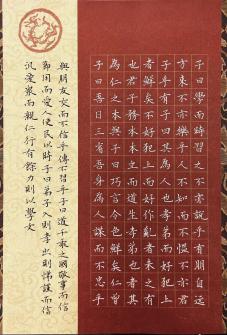 子曰學而時習之不亦說乎有朋自遠
方來不亦樂乎人不知而不慍不亦君
子乎有子曰其為人也孝弟而好犯上
者鮮矣不好犯上而好作亂者未之有
也君子務本本立而道生孝弟也者其
為仁之本與子曰巧言令色鮮矣仁曾
子曰吾日三省吾身為人謀而不忠乎
與朋友交而不信乎傳不習乎子曰道千乘之國敬事而信
節用而愛人使民以時子曰弟子入則孝出則悌謹而信
汎愛眾而親仁行有餘力則以學文